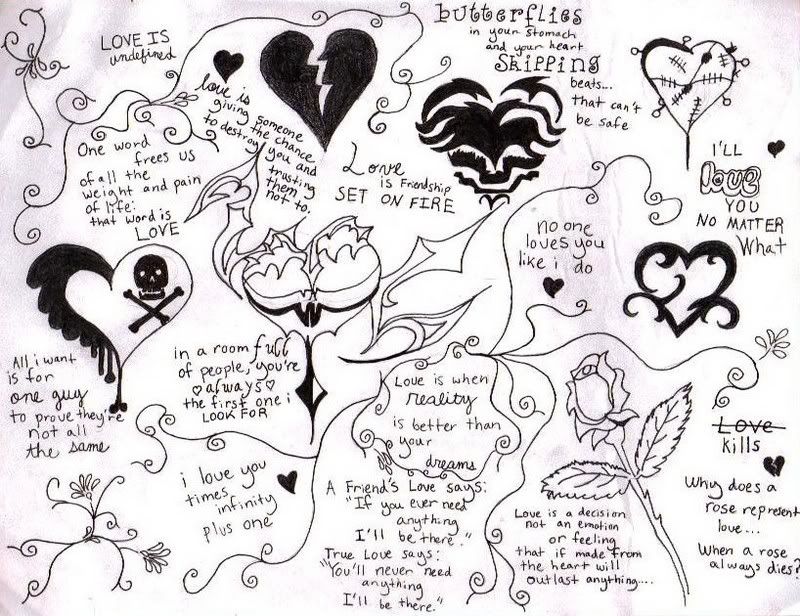 LOVE IS
undefined
butterflies
in your stomach
and your heart
SKIPPING
beats...
that can't
be safe
love is
giving someone
the chance
to destroy you and
trusting
them
not to.
One word
frees us
of all the
weight and pain
of life:
that word is
LOVE
Love
is Friendship
SET ON FIRE
I'LL
love
YOU
NO MATTER
What
no one
loves you
like i do
All i want
is for
one guy
to prove they're
not all
the same
in a room full
of people, you're
always
the first one i
LOOK FOR
Love is when
reality
is better than
your
dreams
i love you
times
infinity
plus one
A Friend's Love says:
"If you ever need
anything
I'll be there."
True Love says:
"You'll never need
anything
I'll be there."
Love is a decision
not an emotion
or feeling
that if made from
the heart will
outlast anything....
Love
kills
Why does a
rose represent
love...
When a rose
always dies?